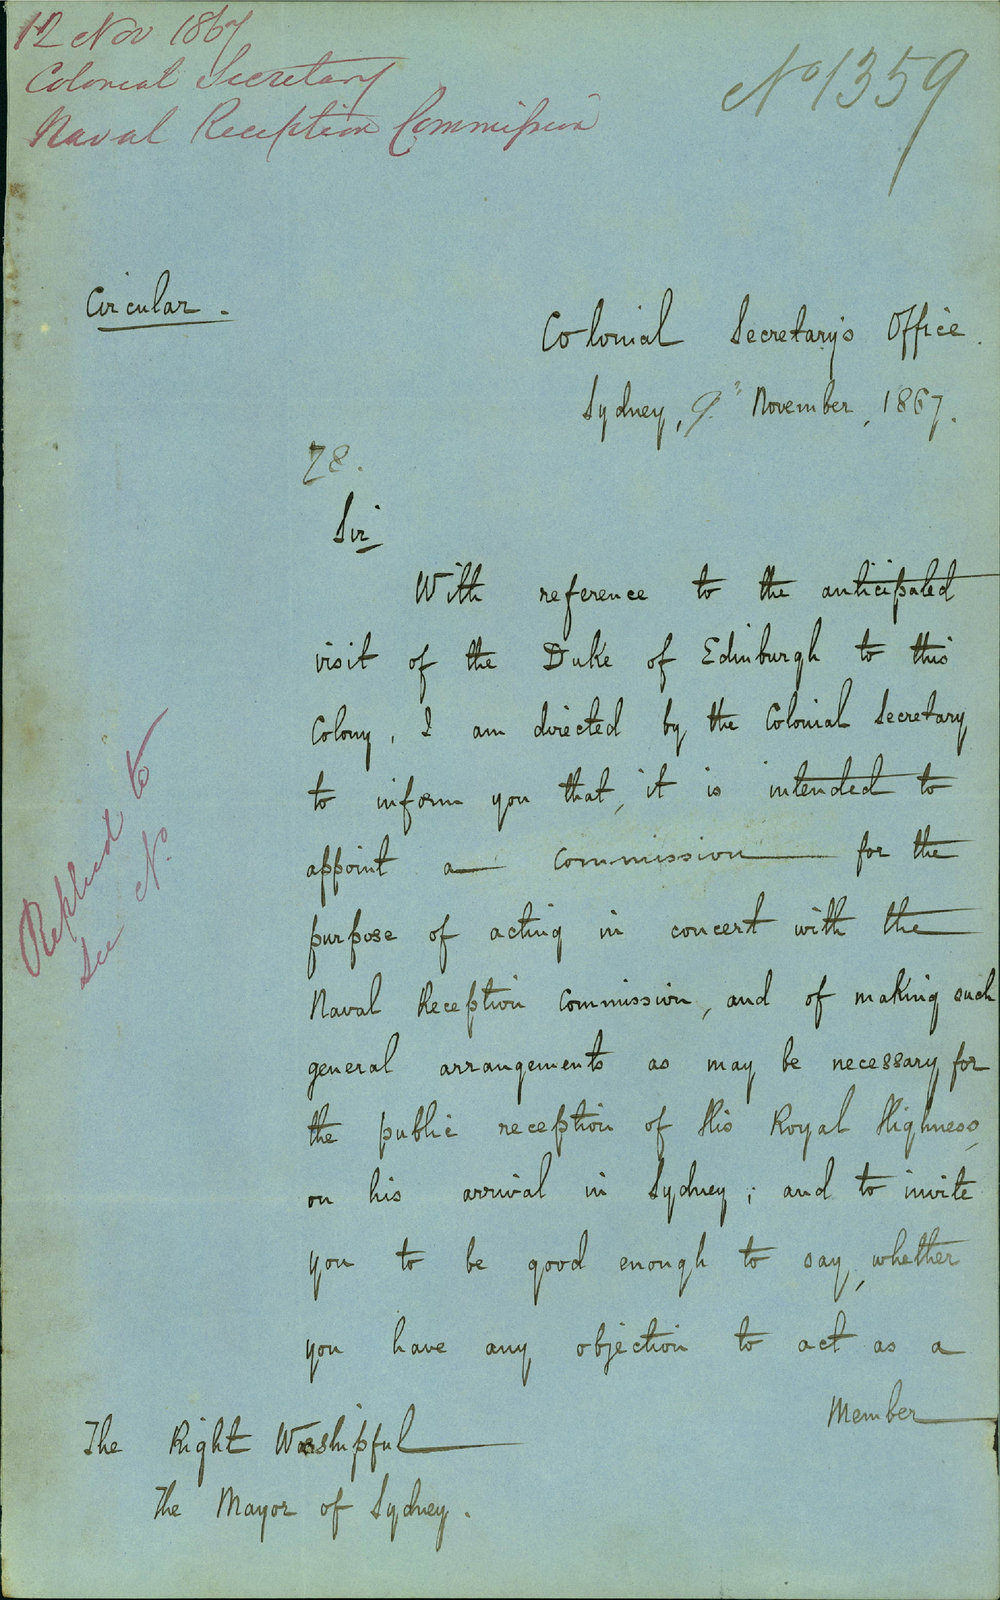 12 Nov 1867
Colonial Secretary
Naval Reception Commission
No 1359
Circular.
Colonial Secretary's Office.
Sydney, 9th November, 1867.
78.
Sir,
With reference to the anticipated
visit of the Duke of Edinburgh to this
Colony, I am directed by the Colonial Secretary
to inform you that, it is intended to
appoint a Commission for the
purpose of acting in concert with the
Naval Reception Commission, and of making such
general arrangements as may be necessary for
the public reception of His Royal Highness,
on his arrival in Sydney; and to invite
you to be good enough to say, whether
you have any objection to act as a
Member
Replied to
See No.
The Right Worshipful
The Mayor of Sydney.